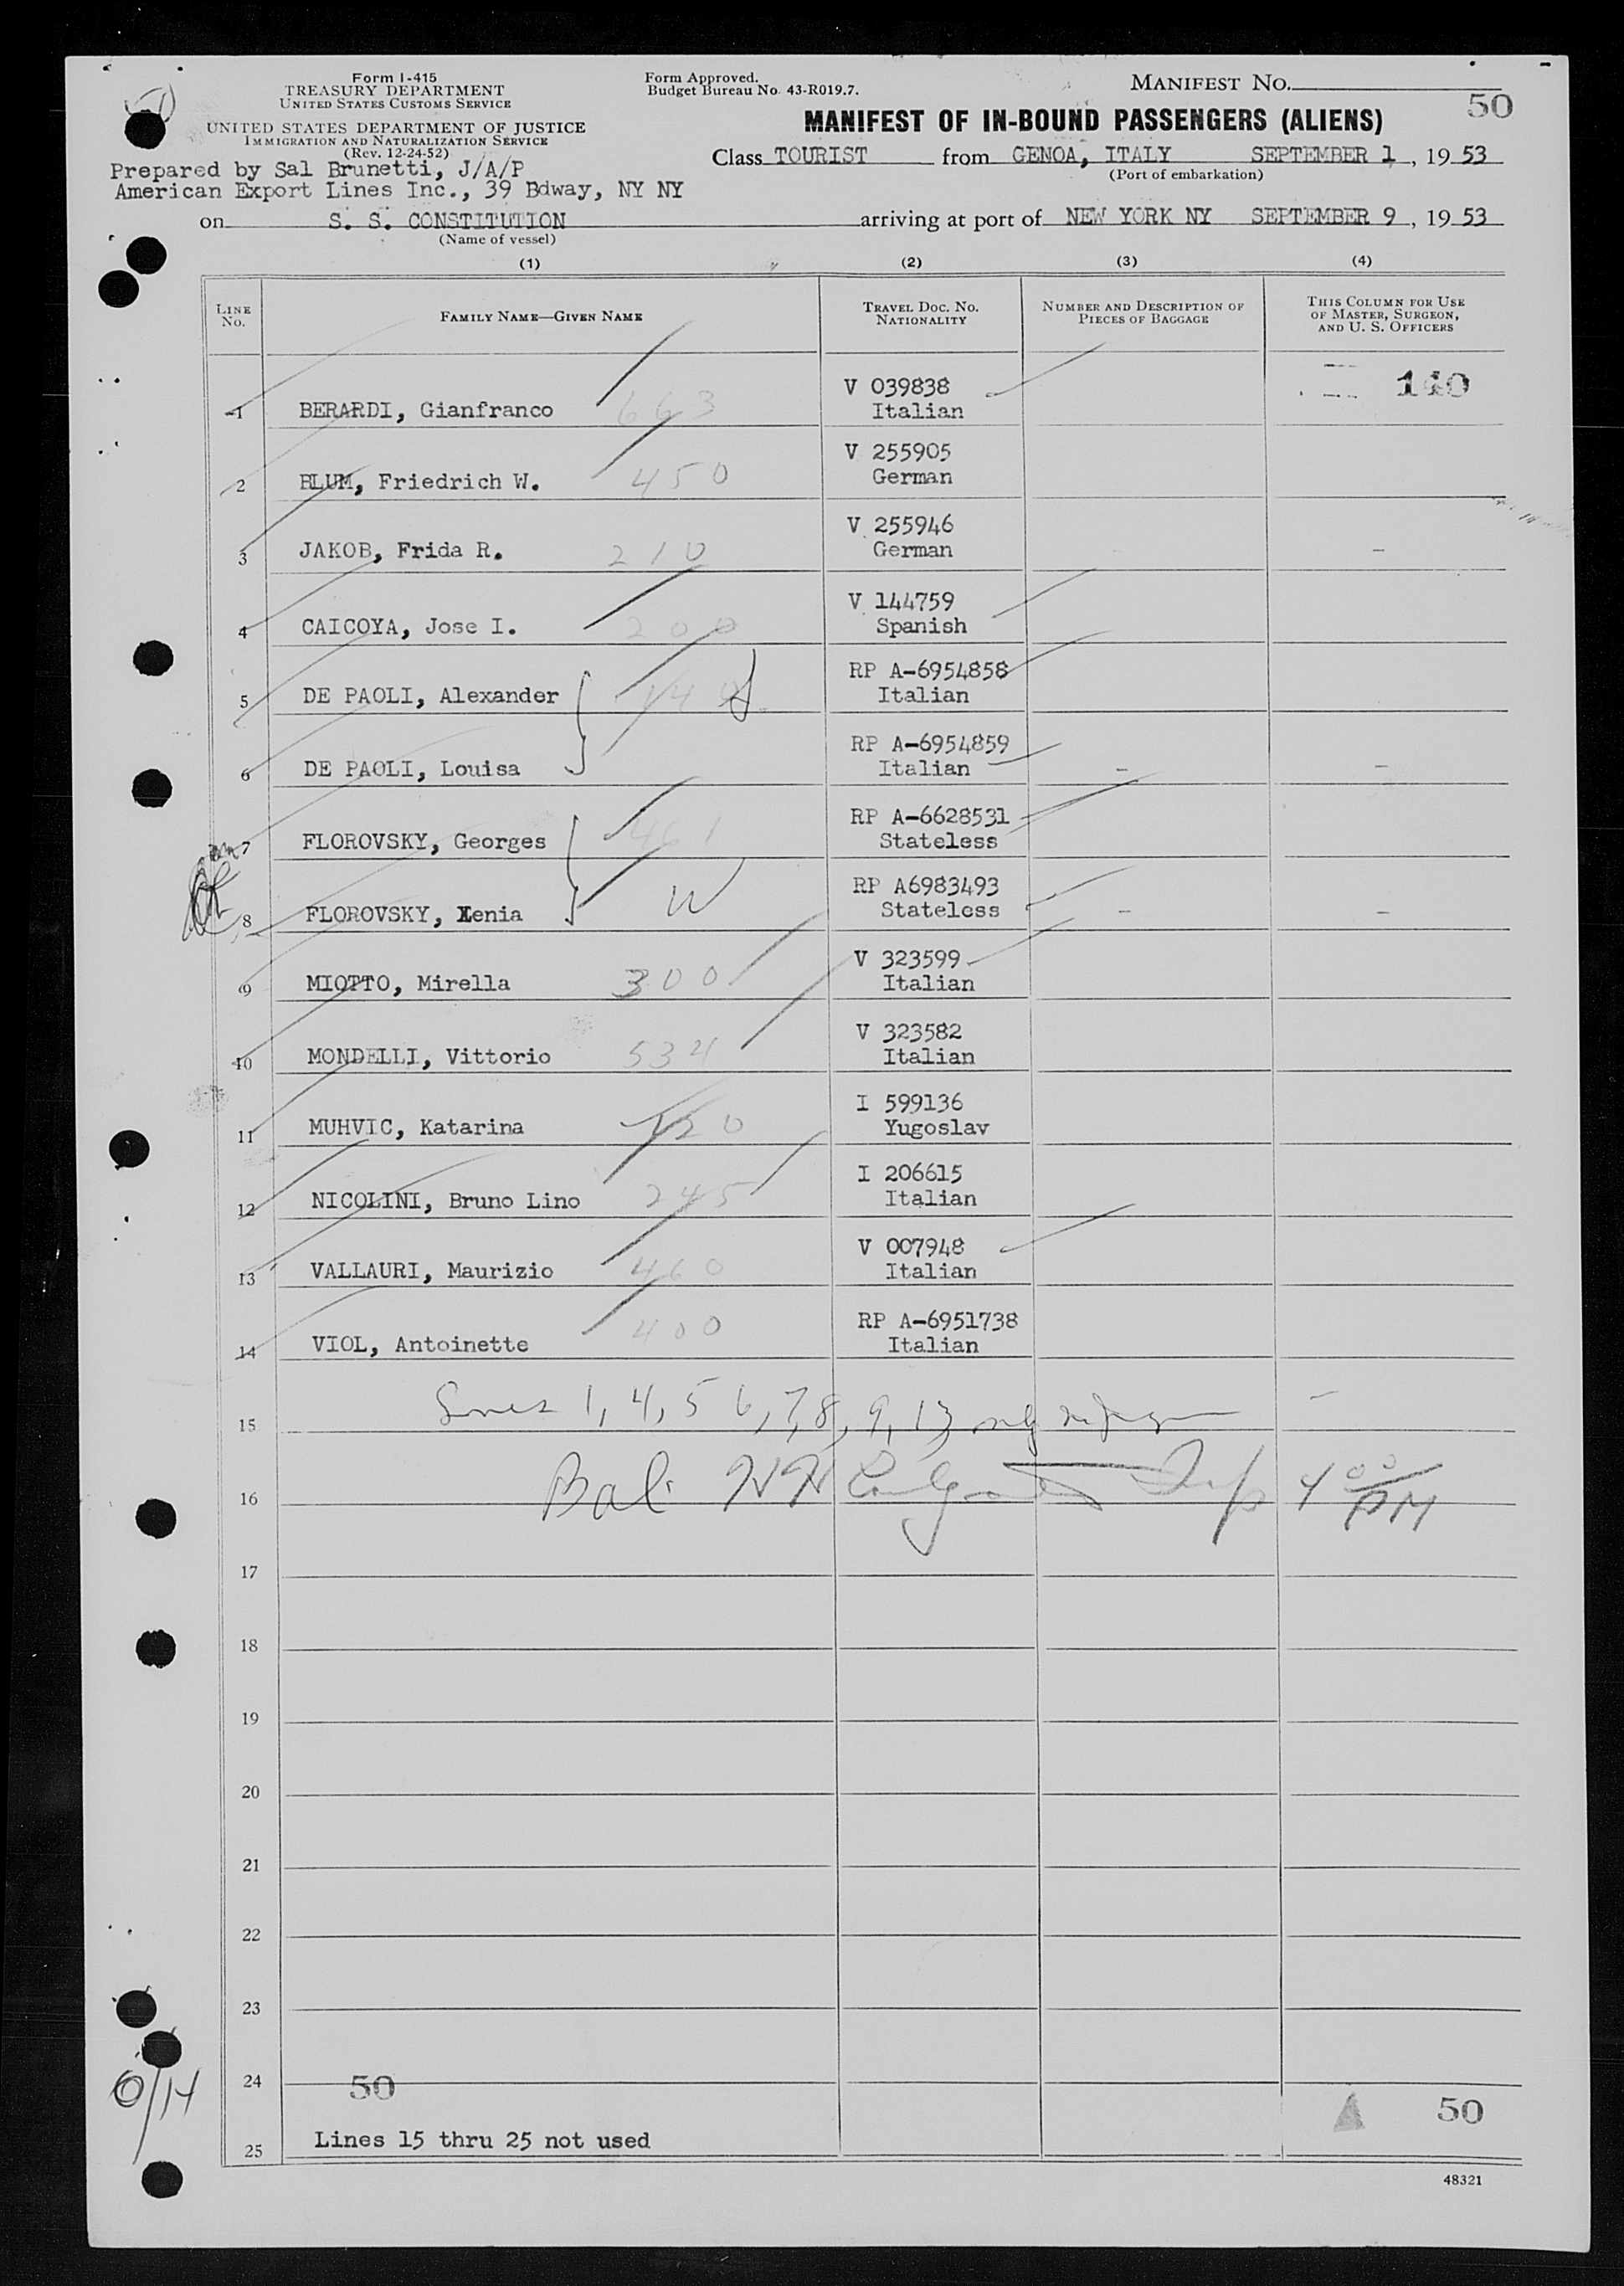 Form I-415
TREASURY DEPARTMENT
UNITED STATES CUSTOMS SERVICE
UNITED STATES DEPARTMENT OF JUSTICE
IMMIGRATION AND NATURALIZATION SERVICE
(Rev. 12-24-52)
Prepared by Sal Brunetti, J/A/P
American Export Lines Inc., 39 Bdway, NY NY
Form Approved.
Budget Bureau No. 43-R019.7.
MANIFEST NO.
50
MANIFEST OF IN-BOUND PASSENGERS (ALIENS)
Class TOURIST from GENOA, ITALY SEPTEMBER 1, 19 53
(Port of embarkation)
on S. S. CONSTITUTION arriving at port of NEW YORK NY SEPTEMBER 9, 19 53
(Name of vessel)
(1) (2) (3) (4)
LINE NO.
FAMILY NAME—GIVEN NAME
TRAVEL DOC. NO. NATIONALITY
NUMBER AND DESCRIPTION OF PIECES OF BAGGAGE
THIS COLUMN FOR USE OF MASTER, SURGEON, AND U. S. OFFICERS
1 BERARDI, Gianfranco 663 V 039838 Italian
2 BLUM, Friedrich W. 450 V 255905 German
3 JAKOB, Frida R. 210 V 255946 German
4 CAICOYA, Jose I. 200 V 144759 Spanish
5 DE PAOLI, Alexander RP A-6954858 Italian
6 DE PAOLI, Louisa RP A-6954859 Italian
7 FLOROVSKY, Georges 461 RP A-6628531 Stateless
8 FLOROVSKY, Xenia W RP A6983493 Stateless
9 MIOTTO, Mirella 300 V 323599 Italian
10 MONDELLI, Vittorio 534 V 323582 Italian
11 MUHVIC, Katarina I 599136 Yugoslav
12 NICOLINI, Bruno Lino 245 I 206615 Italian
13 VALLAURI, Maurizio 460 V 007948 Italian
14 VIOL, Antoinette 400 RP A-6951738 Italian
15 Lines 1, 4, 5 6, 7, 8, 9, 13
16 4 00 PM
17
18
19
20
21
22
23
24 50
0/14
50
25 Lines 15 thru 25 not used
48321